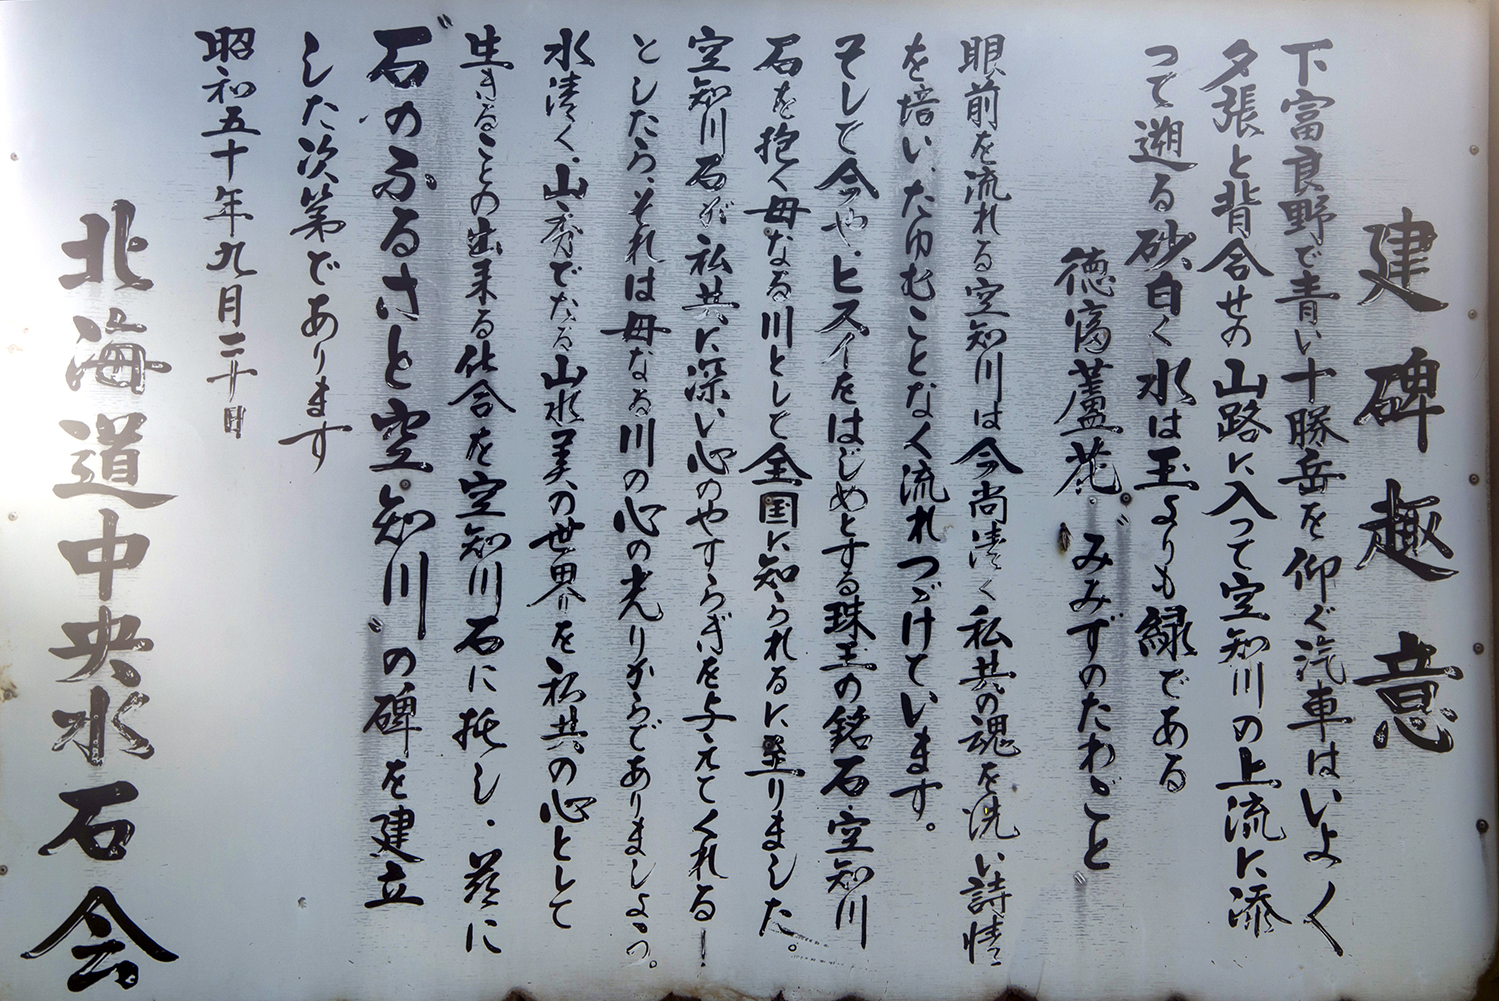 建碑趣意
下富良野で青い十勝岳を仰ぐ汽車はいよく
夕張と背合せの山路に入って空知川の上流に添
って遡る砂白く水は玉よりも緑である
徳富蘆花・〝みみずのたわごと〟
眼前を流れる空知川は今尚清く私共の魂を洗い詩情
を培い、たゆむことなく流れつづけています。
そして今や、ヒスイをはじめとする珠玉の銘石・空知川
石を抱く母なる川として全国に知られるに至りました。
空知川石が私共に深い心のやすらぎを与えてくれる!
としたら、それは母なる川の心の光りからでありましょう。
水清く、山秀でたる山水美の世界を私共の心として
生きることの出来る仕合を空知川石に托し・茲に
〝石のふるさと空知川〟の碑を建立
した次第であります
昭和五十年九月二十日
北海道中央水石会